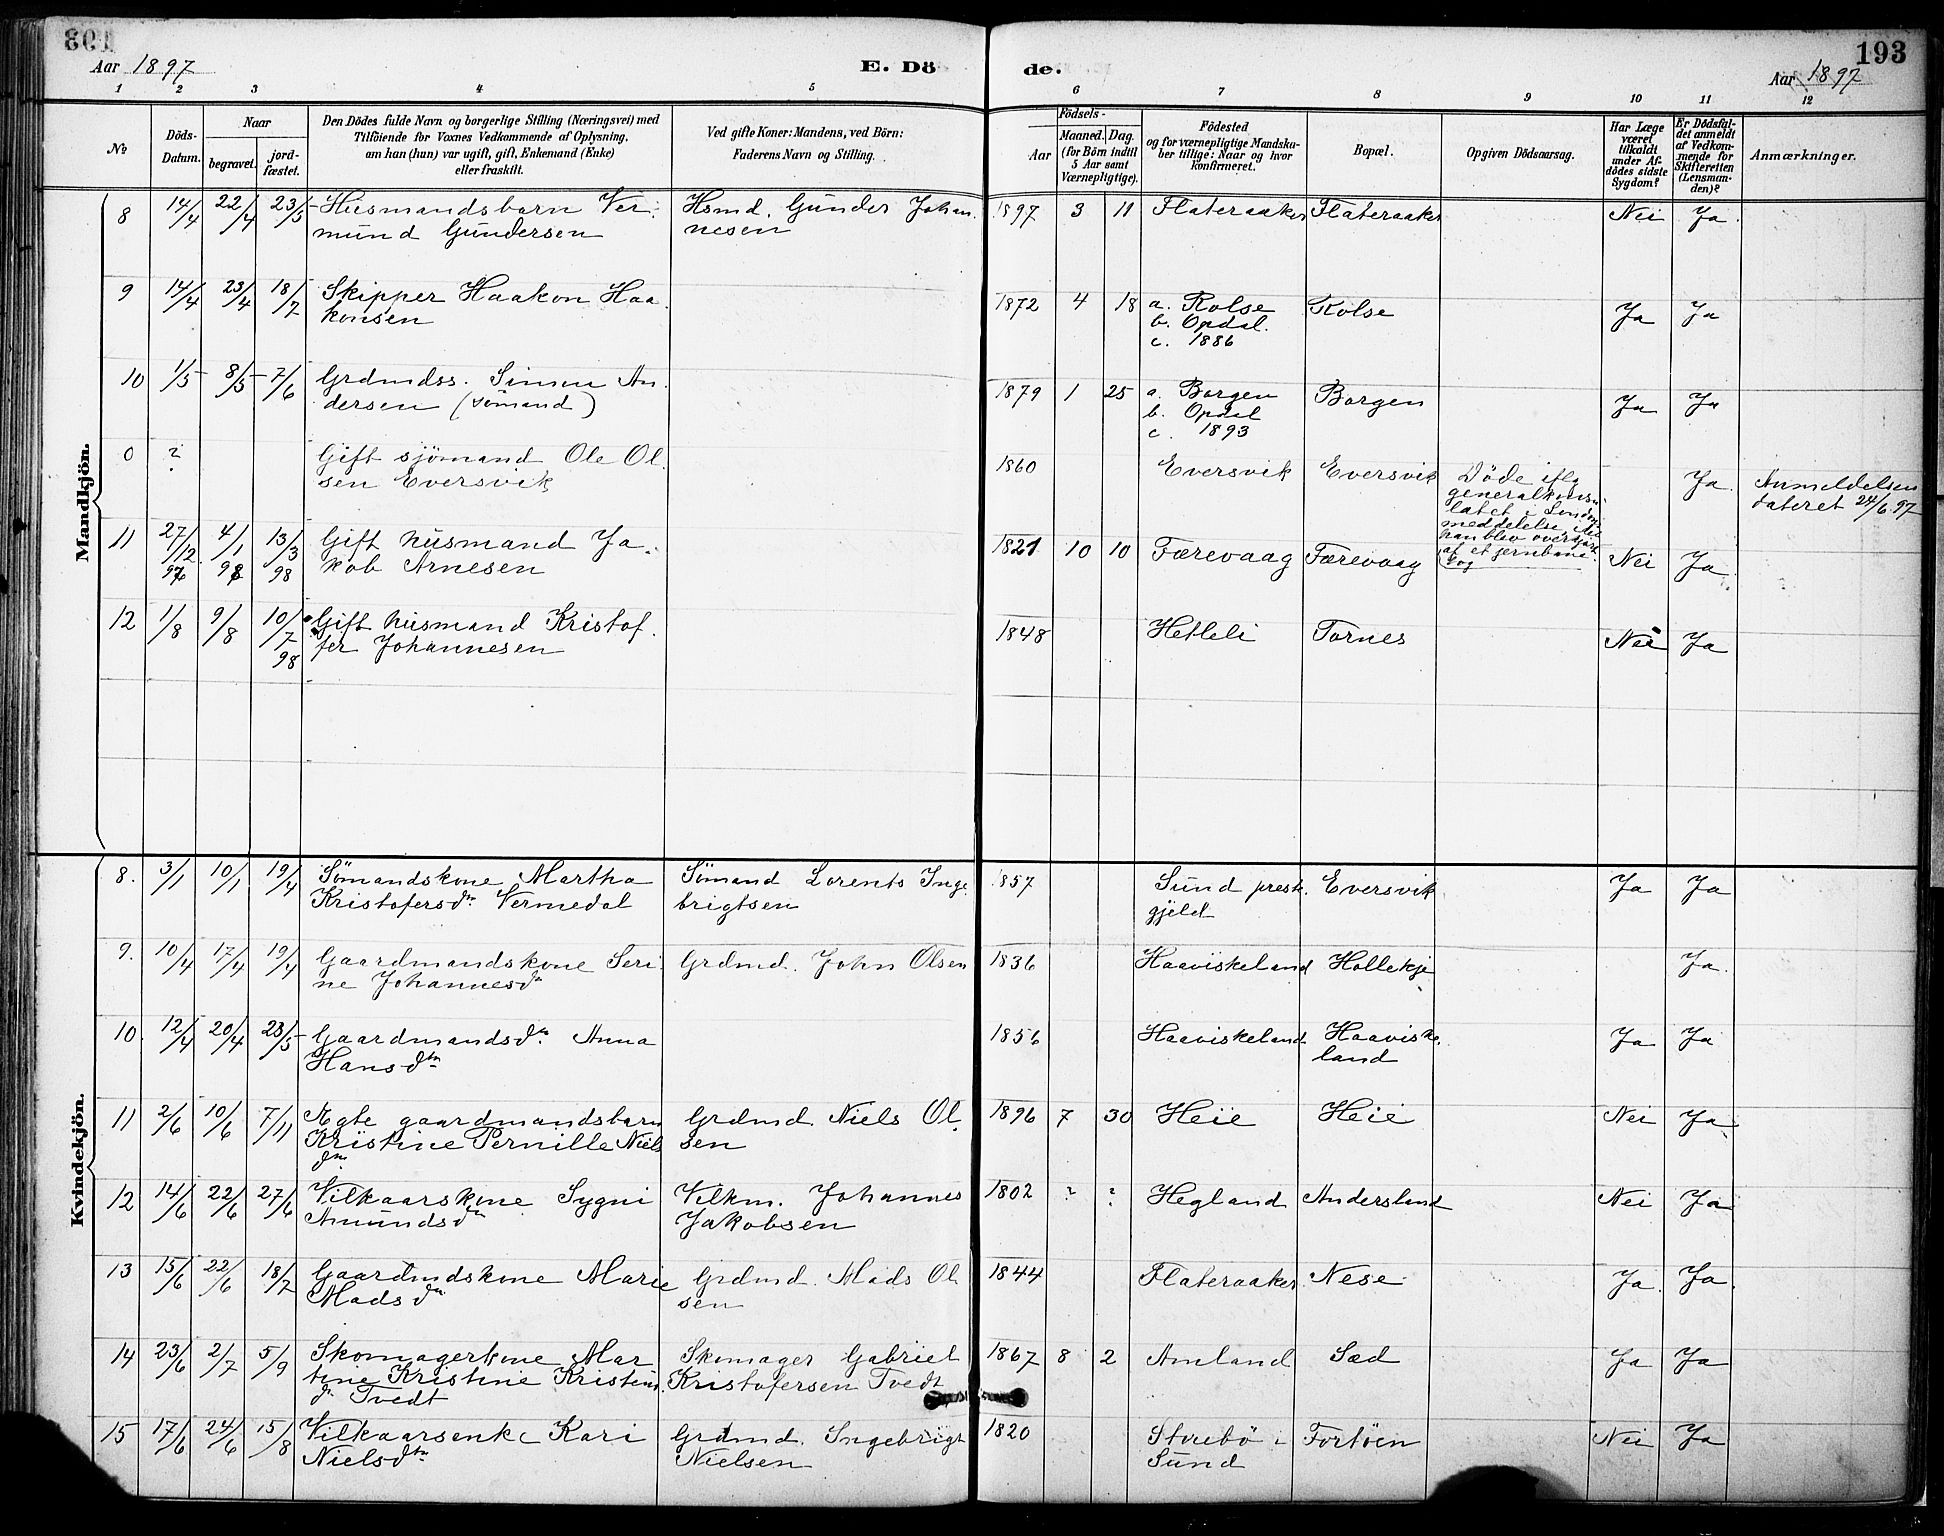 193
Aar 1897
E. Dö
de.
Aar 1897
1 2 3 4 5 6 7 8 9 10 11 12
No
Döds-
Datum.
Naar
begravet.
jord-
fæstet.
Den Dödes fulde Navn og borgerlige Stilling (Næringsvei) med
Tilföiende for Voxnes Vedkommende af Oplysning,
om han (hun) var ugift, gift, Enkemand (Enke)
eller fraskilt.
Ved gifte Koner: Mandens, ved Börn:
Faderens Navn og Stilling.
Födsels-
Aar
Maaned. Dag.
(for Börn indtil
5 Aar samt
Værnepligtige).
Födested
og for værnepligtige Mandska-
ber tillige: Naar og hvor
konfirmeret.
Bopæl.
Opgiven Dödsaarsag.
Har Læge
været
tilkaldt
under Af-
dödes sidste
Sygdom?
Er Dödsfal-
det anmeldt
af Vedkom-
mende for
Skifteretten
(Lensman-
den)?
Anmærkninger.
Mandkjön.
8 14/4 22/4 23/5 Husmandsbarn Ver- Hsmd. Gunder Johan- 1897 3 11 Flateraaker Flateraaker Nei Ja
mund Gundersen nesen
9 14/4 23/4 18/7 Skipper Haakon Haa- 1872 4 18 a. Rolse Rolse Ja Ja
konsen b. Opdal.
c. 1886
10 1/5 8/5 7/6 Grdmdss. Simen An- 1879 1 25 a. Borgen Borgen Ja Ja
dersen (sømand) b. Opdal
c. 1893
0 ? Gift sjömand Ole Ol- 1860 Eversvik Eversvik Döde ifla Ja Anmeldelsen
sen Eversvik generalkonsu- dateret 24/6 97
latet i London
meddelelse
han blev overkjørt
af et jernbane-
tog
11 27/12 4/1 13/3 Gift husmand Ja- 1821 10 10 Færevaag Færevaag Nei Ja
97 98 98 kob Arnesen
12 1/8 9/8 10/7 Gift husmand Kristof- 1848 Hetleli Tornes Nei Ja
98 fer Johannesen
Kvindekjön.
8. 3/1 10/1 19/4 Sömandskone Martha Sömand Lorents Inge- 1857 Sund prest- Eversvik Ja Ja
Kristofersdtr Vermedal brigtsen gjeld
9. 10/4 17/4 19/4 Gaardmandskone Seri- Grdmd. John Olsen 1836 Haaviskeland Hollekje Ja
ne Johannesdtr
10. 12/4 20/4 23/5 Gaardmandsdtr Anna 1856 Haaviskeland Haaviske- Ja Ja
Hansdtr land
11 2/6 10/6 7/11 Ægte gaardmandsbarn Grdmd Niels Ol- 1896 7 30 Heie Heie Nei Ja
Kristine Pernille Niels sen
dtr
12 14/6 22/6 27/6 Vilkaarskone Sygni Vilkm. Johannes 1802 ? ? Hegland Andersland Nei Ja
Amundsdtr Jakobsen
13 15/6 22/6 18/7 Gaardmdskone Marie Grdmd. Mads Ol- 1844 Flateraaker Nese Ja Ja
Madsdtr sen
14 23/6 2/7 5/9 Skomagerkone Mar- Skomager Gabriel 1867 8 2 Amland Sæd Ja Ja
tine Kristine Kristens Kristofersen Tvedt
dtr Tvedt
15 17/6 24/6 15/8 Vilkaarsenke Kari Grdmd. Ingebrigt 1820 Storebö i Fortöen Nei Ja
Nielsdtr Nielsen Sund